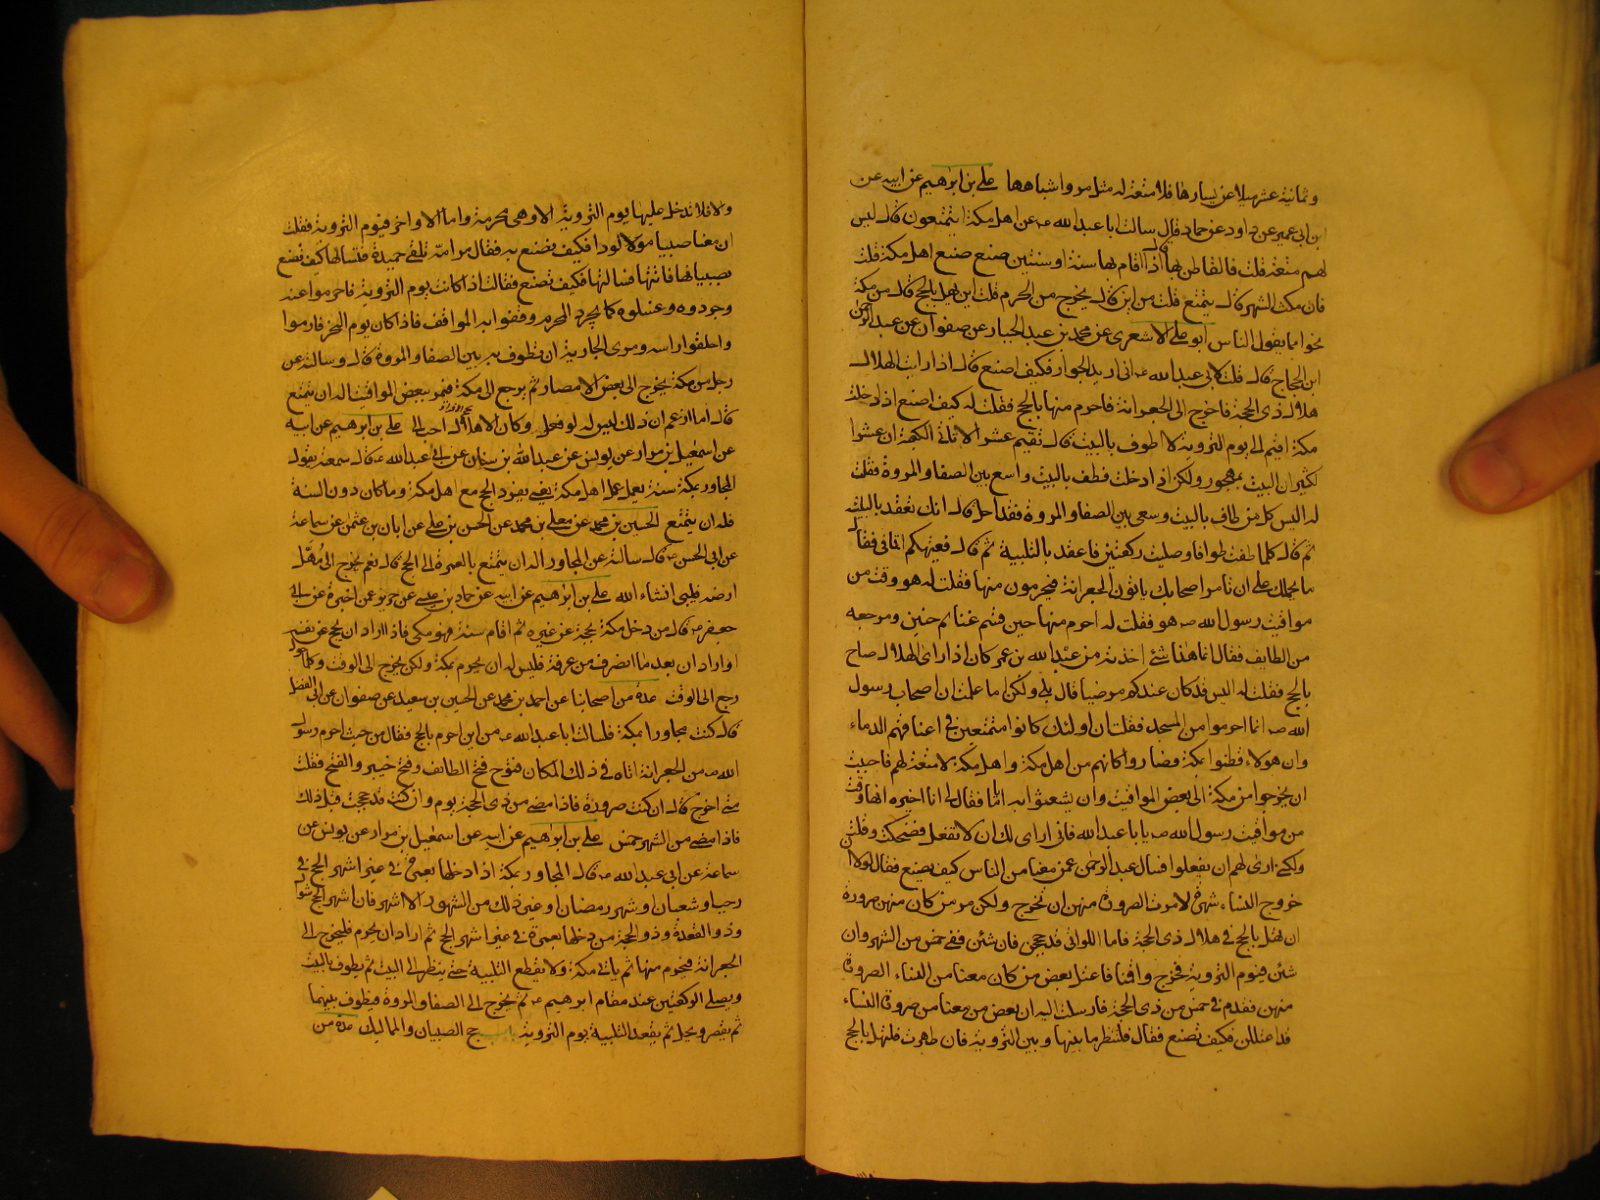 وثمانية عشر ميلا عن يسارها فلا متعة له مثل مر واشباهها علي بن ابرهيم عن ابيه عن
ابن ابي عمير عن داود عن حماد قال سالت ابا عبد الله عن اهل مكة ايتمتعون قال ليس
لهم متعة قلت فالقاطن بها قال اذا اقام بها سنة او سنتين صنع صنع اهل مكة قلت
فان مكث الشهر قال يتمتع قلت من اين قال يخرج من الحرم قلت اين يهل بالحج قال من مكة
نحوا مما يقول الناس ابو علي الاشعري عن محمد بن عبد الجبار عن صفوان عن عبد الرحمن
ابن الحجاج قال قلت لابي عبد الله اني اريد الجوار فكيف اصنع قال اذا رايت الهلال
هلال ذي الحجة فاخرج الى الجعرانة فاحرم منها بالحج فقلت له كيف اصنع اذا دخلت
مكة اقيم الى يوم التروية لا اطوف بالبيت قال تقيم عشرا لا تاتي الكعبة ان عشرا
لكثير ان البيت بمهجور ولكن اذا دخلت فطف بالبيت واسع بين الصفا والمروة فقلت
له اليس كل من طاف بالبيت وسعى بين الصفا والمروة فقد احل قال انك تعقد بالتلبية
ثم قال كلما طفت طوافا وصليت ركعتين فاعقد بالتلبية ثم قال فقيهكم اتاني فقال
ما يحملك على ان تامر اصحابك ياتون الجعرانة فيحرمون منها فقلت له هو وقت من
مواقيت رسول الله ص هو فقلت له احرم منها حين قسم غنايم حنين ومرجعه
من الطايف فقال انما هذا شئ اخذته من عبد الله بن عمر كان اذا راى الهلال صاح
بالحج فقلت له اليس قد كان عندكم مرضيا قال بلى ولكن اما علمت ان اصحاب رسول
الله ص انما احرموا من المسجد فقلت ان اولئك كانوا متمتعين في اعناقهم الدماء
وان هولاء قطنوا بمكة فصاروا كانهم من اهل مكة واهل مكة لا متعة لهم فاحببت
ان يخرجوا من مكة الى بعض المواقيت وان يشعثوا به اياما فقال لي انا اخبره انها وقت
من مواقيت رسول الله ص يا ابا عبد الله فاني ارى لك ان لا تفعل فضحكت وقلت
ولكني ارى لهم ان يفعلوا فسال عبد الرحمن عمن معنا من النساء كيف يصنع فقال لولا ان
خروج النساء شهرة لامرت الصرورة منهن ان تخرج ولكن مر من كان منهن صرورة
ان تهل بالحج في هلال ذي الحجة فاما اللواتي قد حججن فان شئن ففي خمس من الشهر وان
شئن فيوم التروية فخرج واقمنا فاعتل بعض من كان معنا من النساء الصرورة
منهن فقدم في خمس من ذي الحجة فارسلت اليه ان بعض من معنا من صرورة النساء
قد اعتللن فكيف تصنع فقال فلتنظر ما بينها وبين التروية فان طهرت فلتهل بالحج
والا فلا تدخل عليها يوم التروية الا وهي محرمة واما الاواخر فيوم التروية فقلت
ان معنا صبيا مولودا فكيف نصنع به فقال مر امه تلقى حميدة فتسالها كيف تصنع
بصبيانها فاتتها فسالتها كيف تصنع فقالت اذا كانت يوم التروية فاحرموا عنه
وجردوه وغسلوه كما يجرد المحرم وقفوا به المواقف فاذا كان يوم النحر فارموا
واحلقوا راسه ومري الجارية ان تطوف به بين الصفا والمروة قال وسالته عن
رجل من مكة يخرج الى بعض الامصار ثم يرجع الى مكة فيمر ببعض المواقيت اله ان يتمتع
قال ما ازعم ان ذلك ليس له لو فعل وكان الاهلال احب الي علي بن ابرهيم عن ابيه
عن اسمعيل بن مرار عن يونس عن عبد الله بن سنان عن ابي عبد الله قال سمعته يقول
المجاور بمكة سنة يعمل عمل اهل مكة يعني يفرد الحج مع اهل مكة وما كان دون السنة
فله ان يتمتع الحسين بن محمد عن معلى بن محمد عن الحسن بن علي عن ابان بن عثمن عن سماعة
عن ابي الحسن قال سالته عن المجاور اله ان يتمتع بالعمرة الى الحج قال نعم يخرج الى مهل
ارضه فيلبي انشاء الله علي بن ابرهيم عن ابيه عن حماد بن عيسى عن حريز عمن اخبره عن ابي
جعفر قال من دخل مكة بحجة عن غيره ثم اقام سنة فهو مكي فاذا اراد ان يحج عن نفسه
او اراد ان يعتمر بعد ما انصرف من عرفة فليس له ان يحرم بمكة ولكن يخرج الى الوقت وكلما حول
رجع الى الوقت عدة من اصحابنا عن احمد بن محمد عن الحسين بن سعيد عن صفوان عن ابي الفضل
قال كنت مجاورا بمكة فسالت ابا عبد الله من اين احرم بالحج فقال من حيث احرم رسول
الله ص من الجعرانة اتاه في ذلك المكان فتوح فتح الطايف وفتح خيبر والفتح فقلت
متى اخرج قال ان كنت صرورة فاذا مضى من ذي الحجة يوم وان كنت قد حججت قبل ذلك
فاذا مضى من الشهر خمس علي بن ابرهيم عن ابيه عن اسمعيل بن مرار عن يونس عن
سماعة عن ابي عبد الله قال المجاور بمكة اذا دخلها بعمرة في غير اشهر الحج في
رجب او شعبان او شهر رمضان او غير ذلك من الشهور الا اشهر الحج فان اشهر الحج شوال
وذو القعدة وذو الحجة من دخلها بعمرة في غير اشهر الحج ثم اراد ان يحرم فليخرج الى
الجعرانة فيحرم منها ثم ياتي مكة ولا يقطع التلبية حتى ينظر الى البيت ثم يطوف بالبيت
ويصلي الركعتين عند مقام ابرهيم ثم يخرج الى الصفا والمروة فيطوف بينهما
ثم يقصر ويحل ثم يعقد التلبية يوم التروية باب حج الصبيان والمماليك عدة من